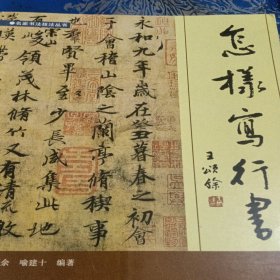 名家书法技法丛书
永和九年岁在癸丑暮春之初會
于會稽山陰之蘭亭脩稧事
也群賢畢至少長咸集此地
有崇山峻領茂林脩竹又有清流激
怎樣寫行書
王頌餘
余 喻建十 编著